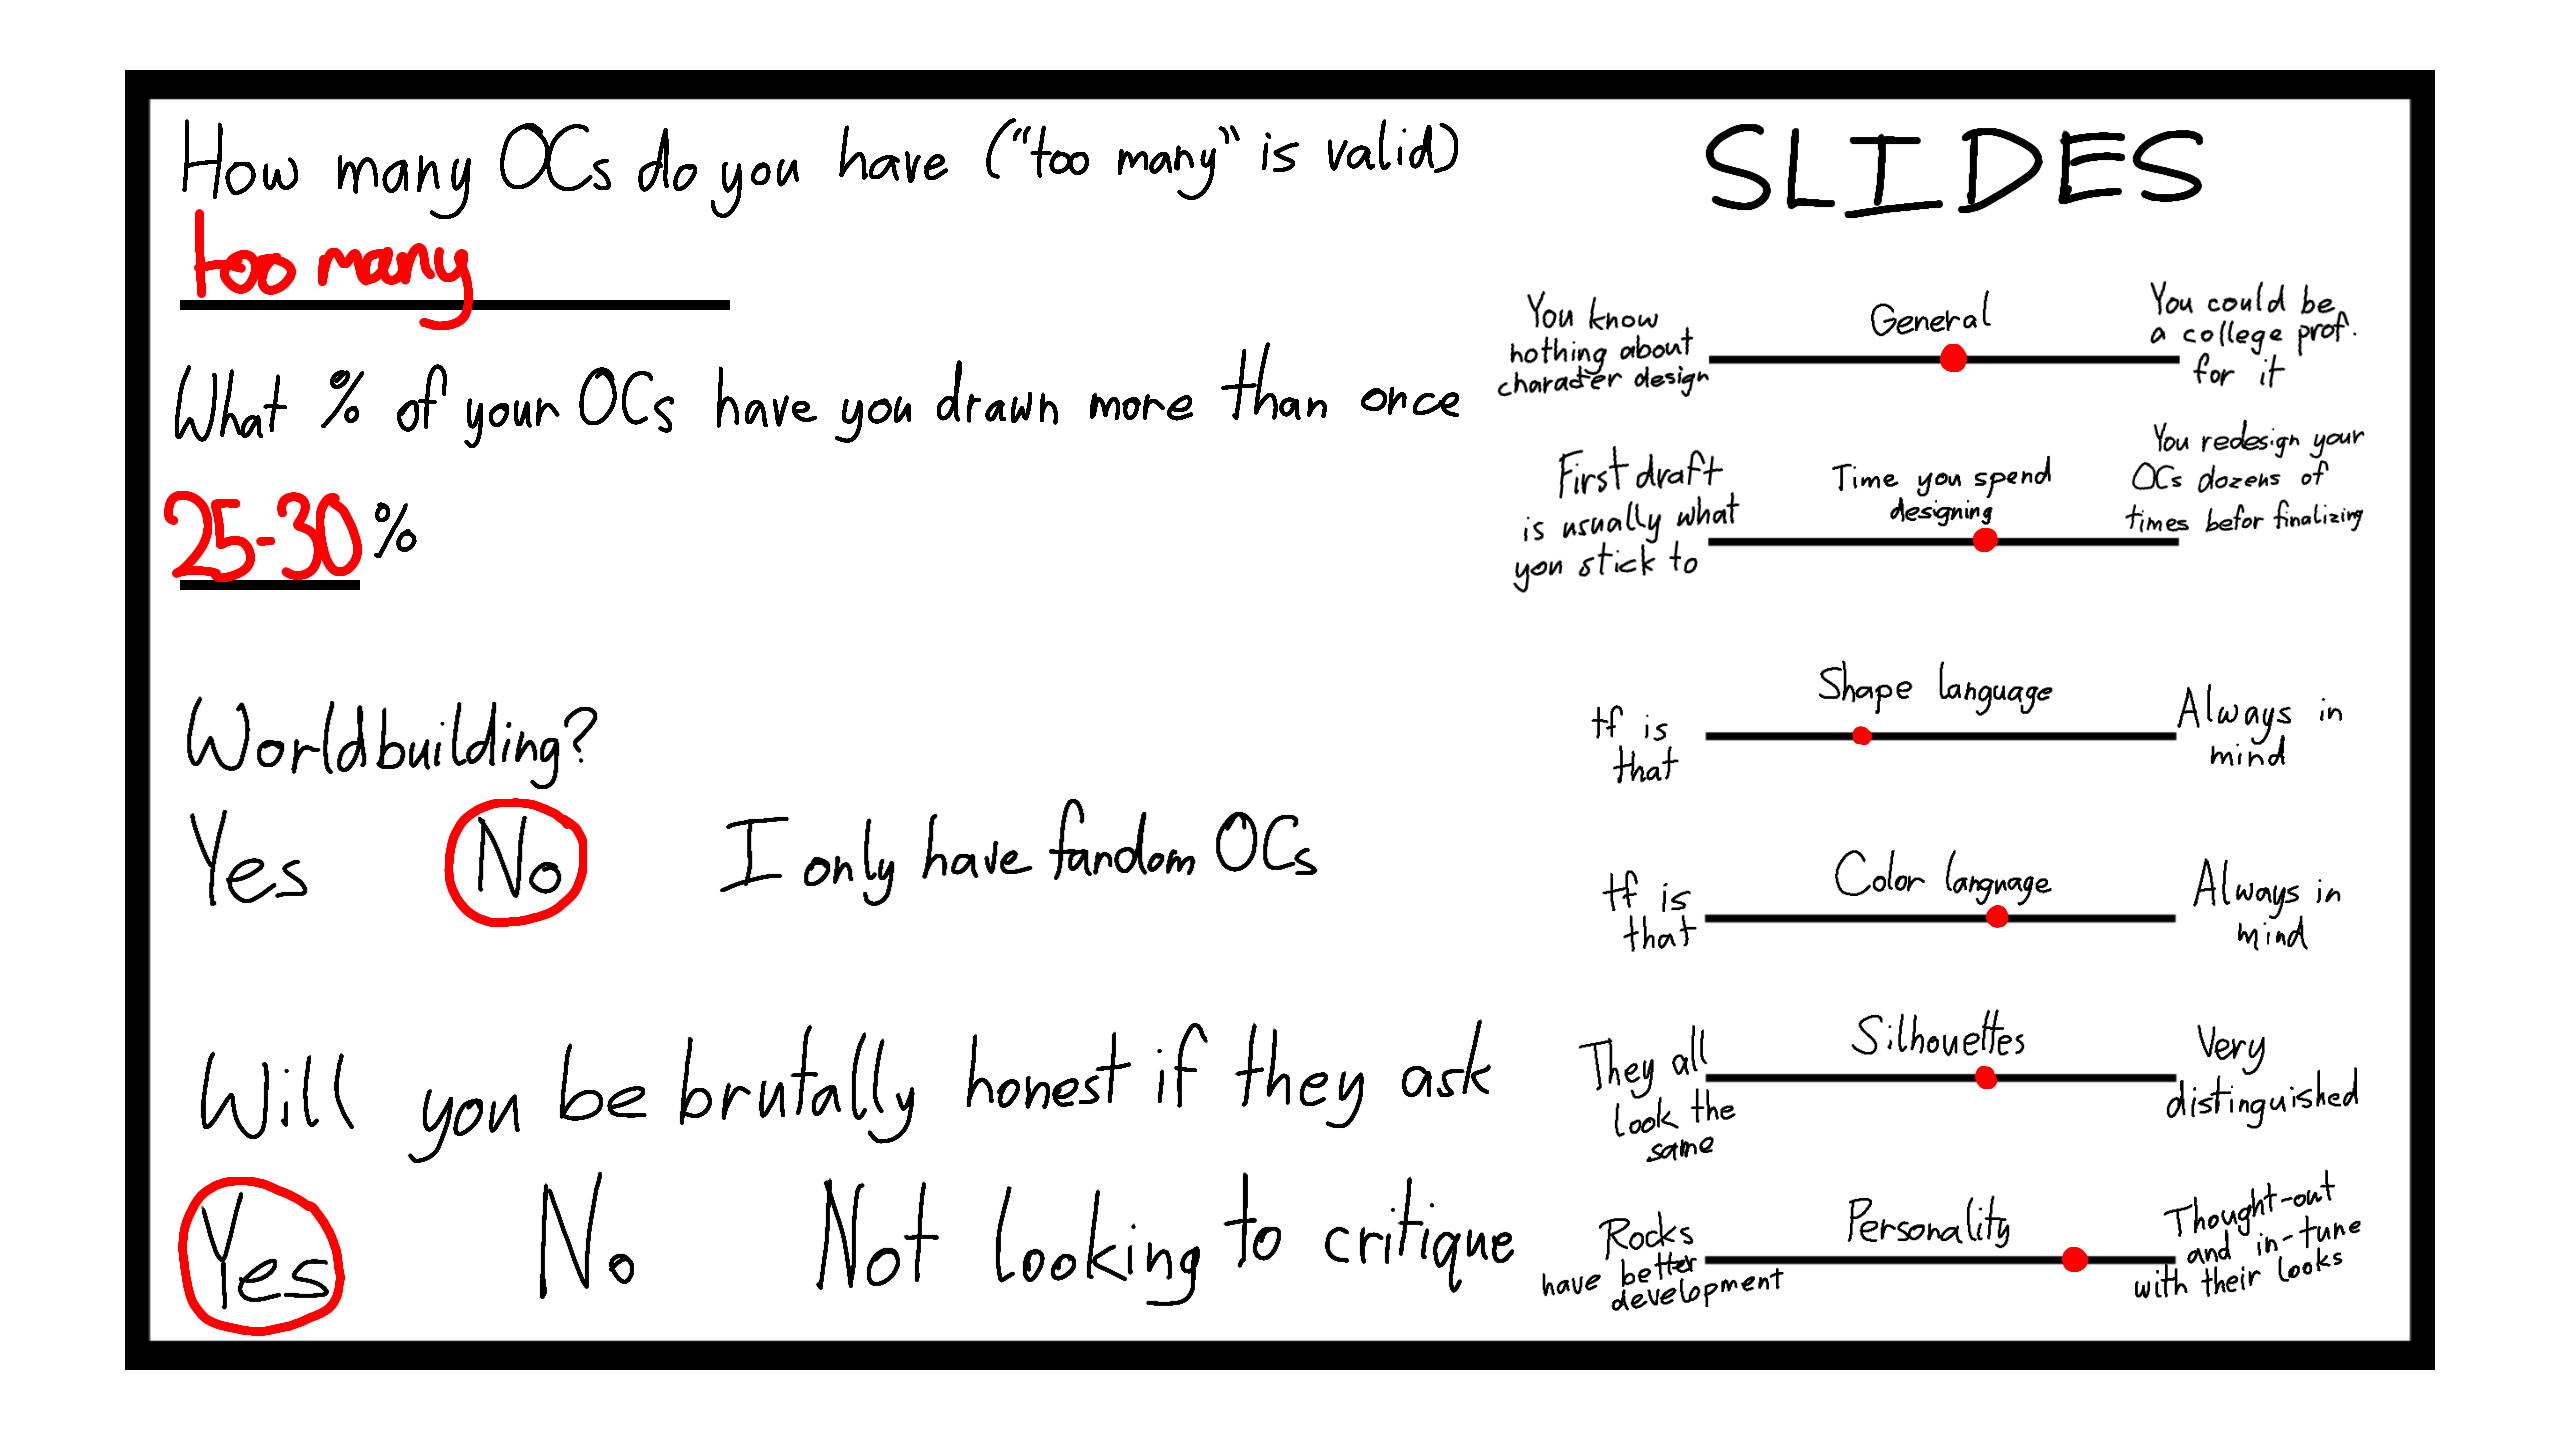 How many OCs do you have ("too many" is valid)
too many
What % of your OCs have you drawn more than once
25-30%
Worldbuilding?
Yes No I only have fandom OCs
Will you be brutally honest if they ask
Yes No Not looking to critique
SLIDES
General
You know
nothing about
character design
You could be
a college prof.
for it
Time you spend
designing
First draft
is usually what
you stick to
You redesign your
OCs dozens of
times befor finalizing
Shape language
tf is
that
Always in
mind
Color language
tf is
that
Always in
mind
Silhouettes
They all
look the
same
Very
distinguished
Personality
Rocks
have better
development
Thought-out
and in-tune
with their looks